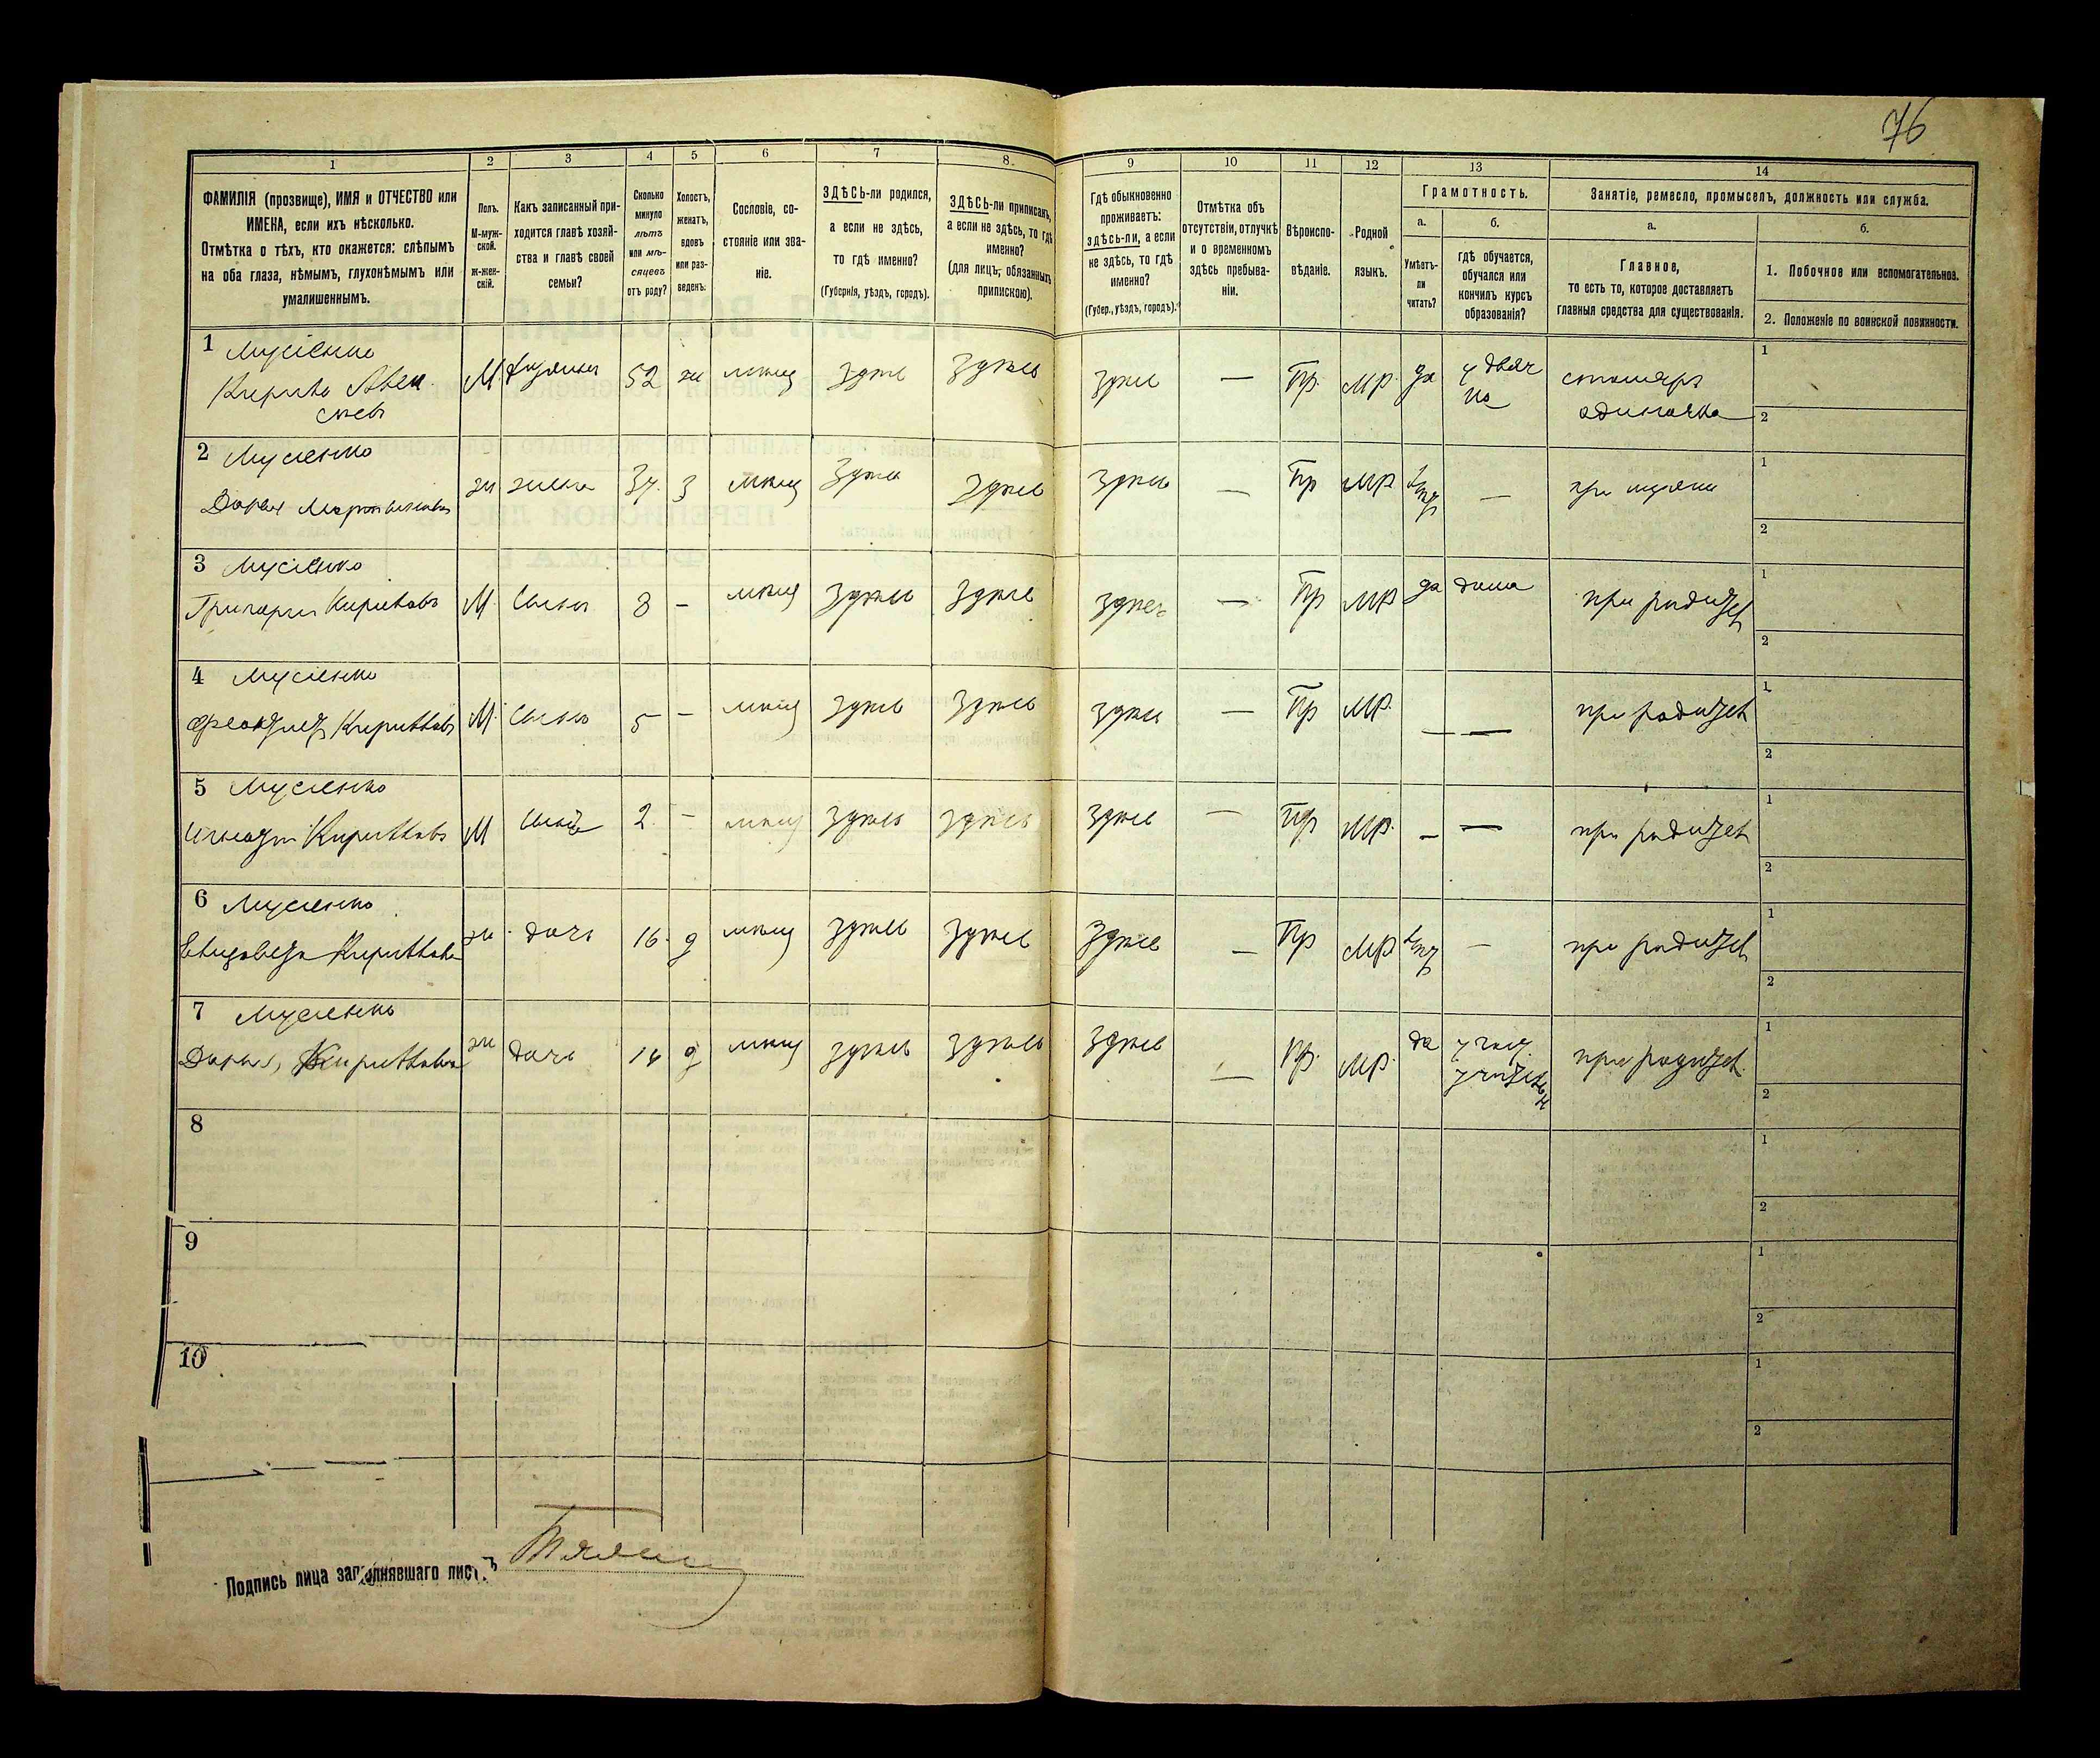 76
1
2
3
4
5
6
7
8
9
10
11
12
13
14
ФАМИЛІЯ (прозвище), ИМЯ и ОТЧЕСТВО или
ИМЕНА, если ихъ нѣсколько.
Отмѣтка о тѣхъ, кто окажется: слѣпымъ
на оба глаза, нѣмымъ, глухонѣмымъ или
умалишеннымъ.
Полъ.
М-муж-
ской.
ж-жен-
скій.
Какъ записанный при-
ходится главѣ хозяй-
ства и главѣ своей
семьи?
Сколько
минуло
лѣтъ
или мѣ-
сяцевъ
отъ роду?
Холостъ,
женатъ,
вдовъ
или раз-
веденъ.
Сословіе, со-
стояніе или зва-
ніе.
ЗДѢСЬ-ли родился,
а если не здѣсь,
то гдѣ именно?
(Губернія, уѣздъ, городъ).
ЗДѢСЬ-ли приписанъ,
а если не здѣсь, то гдѣ
именно?
(для лицъ, обязанныхъ
припискою).
Гдѣ обыкновенно
проживаетъ:
здѣсь-ли, а если
не здѣсь, то гдѣ
именно?
(Губер., уѣздъ, городъ).
Отмѣтка объ
отсутствіи, отлучкѣ
и о временномъ
здѣсь пребыва-
ніи.
Вѣроиспо-
вѣданіе.
Родной
языкъ.
Грамотность.
а.
б.
Умѣетъ-
ли
читать?
гдѣ обучается,
обучался или
кончилъ курсъ
образованія?
Занятіе, ремесло, промыселъ, должность или служба.
а.
б.
Главное,
то есть то, которое доставляетъ
главныя средства для существованія.
1. Побочное или вспомогательное.
2. Положеніе по воинской повинности.
1 Мусіенко
Кирило
М 52 мѣщ здѣсь здѣсь здѣсь — Пр. МР. да столяръ
одиночка
1
2
2 Мусіенко
Дарья
жена мѣщ здѣсь здѣсь здѣсь — Пр МР —
1
2
3 Мусіенко
Григорій Кириловъ М. Сынъ 8 — мѣщ здѣсь здѣсь здѣсь — Пр МР да дома при родител
1
2
4 Мусіенко
Кирилловъ М. Сынъ 5 — мѣщ здѣсь здѣсь здѣсь — Пр МР. — — при родител
1
2
5 Мусіенко
Игнатій Кирилловъ М Сынъ 2 — мѣщ здѣсь здѣсь здѣсь — Пр МР. — — при родител
1
2
6 Мусіенко
Елизавета Кириллова дочь 16 д мѣщ здѣсь здѣсь здѣсь — Пр МР — при родител
1
2
7 Мусіенко
Дарья, Кириллова дочь 14 д мѣщ здѣсь здѣсь здѣсь — Пр. МР. да при родител.
1
2
8
1
2
9
1
2
10
1
2
Подпись лица заполнявшаго листъ